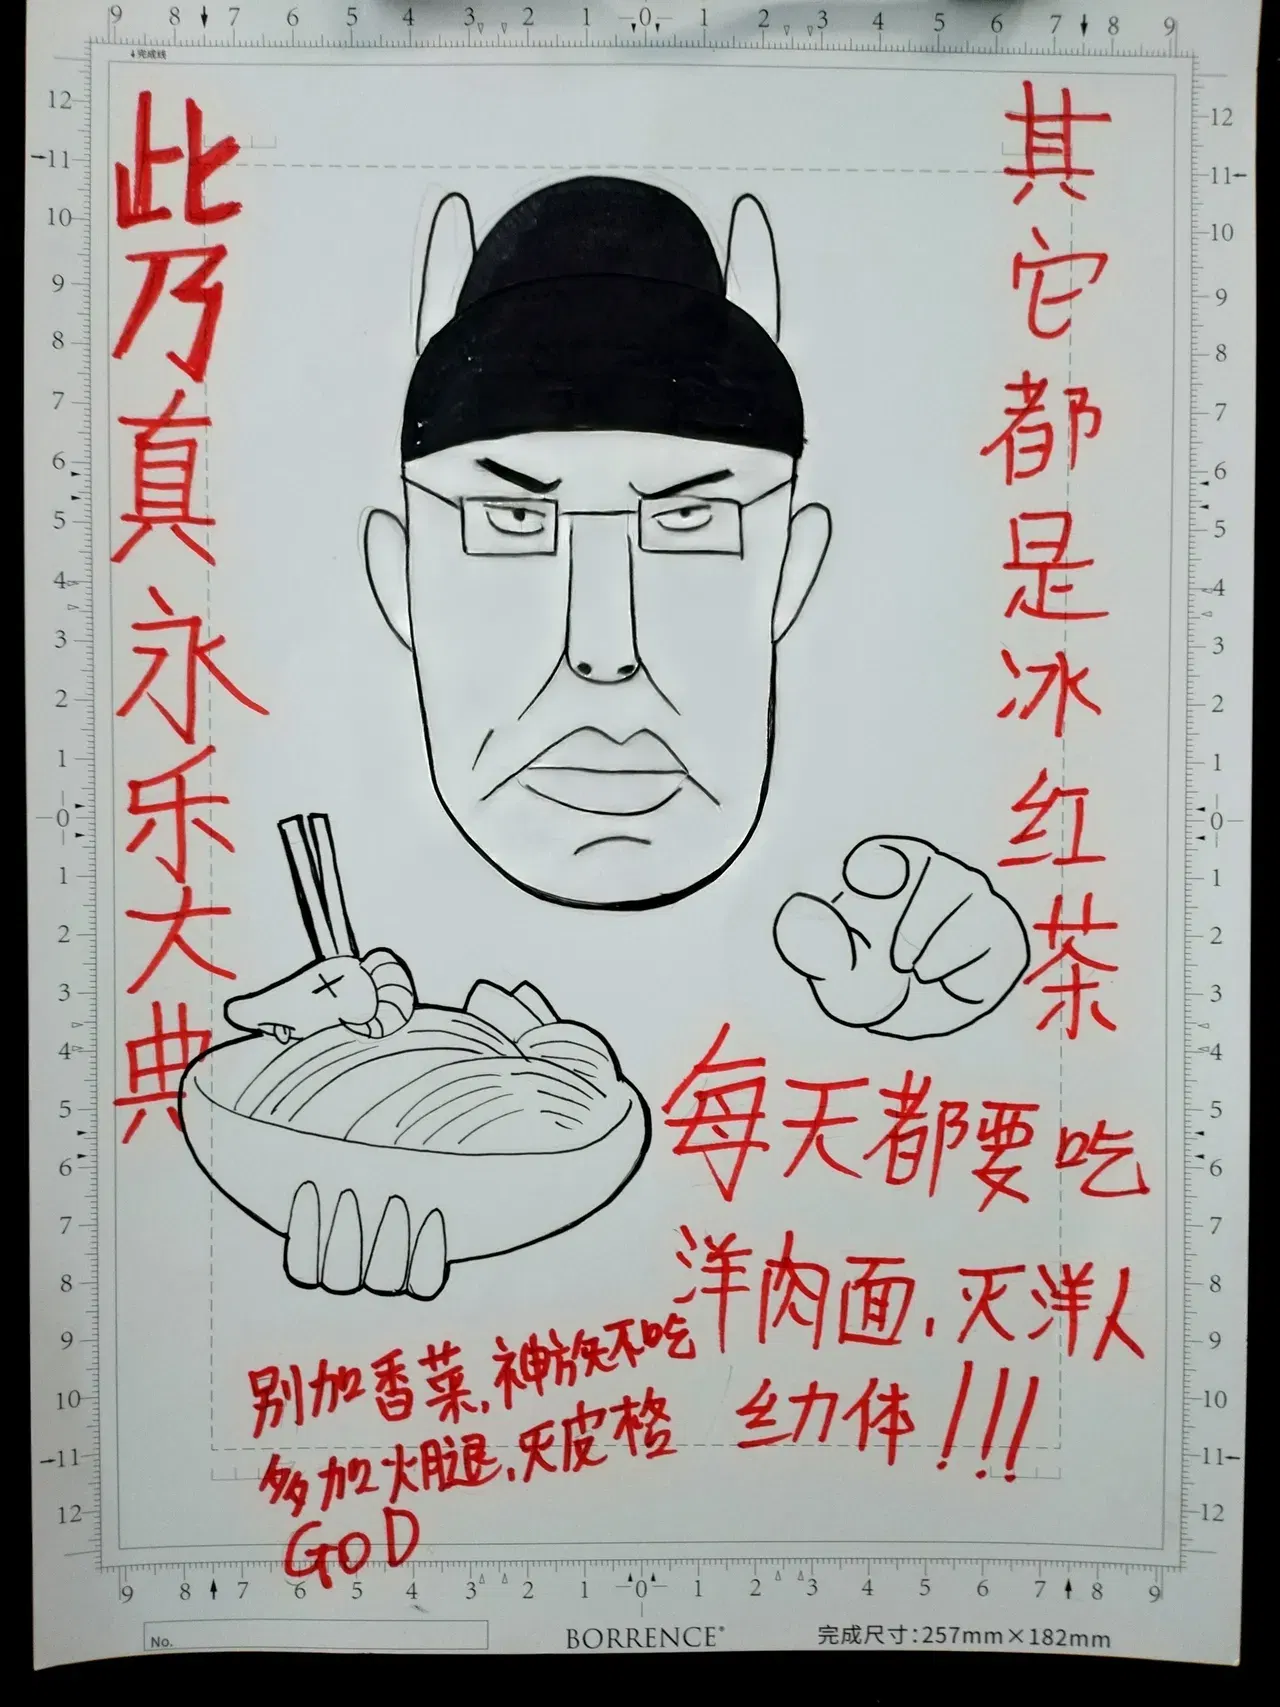 此乃真永乐大典
其它都是冰红茶
每天都要吃
洋肉面,灭洋人
幺力体!!!
别加香菜,神族不吃
多加火腿,灭皮格
GOD
完成线
No.
BORRENCE®
完成尺寸:257mm×182mm
9 8 7 6 5 4 3 2 1 0 1 2 3 4 5 6 7 8 9
12 11 10 9 8 7 6 5 4 3 2 1 0 1 2 3 4 5 6 7 8 9 10 11 12
12 11 10 9 8 7 6 5 4 3 2 1 0 1 2 3 4 5 6 7 8 9 10 11 12
9 8 7 6 5 4 3 2 1 0 1 2 3 4 5 6 7 8 9